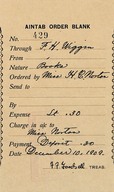 AINTAB ORDER BLANK
No. 429
Through F. H. Wiggin
From
Nature Books
Ordered by Miss H. C. Norton
Send to
By
Expense Lt .30
Charge in a/c to
Miss Norton
Payment Deposit .30
Date December 10, 1909.
TREAS.